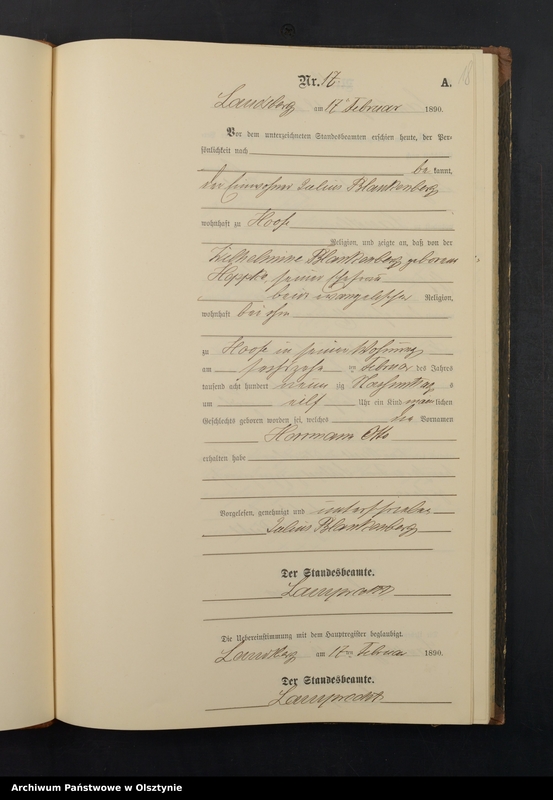 Nr. 17 A.
Landsberg am 17ten Februar 1890.
Vor dem unterzeichneten Standesbeamten erschien heute, der Per-
sönlichkeit nach
be kannt,
der Einwohner Julius Blankenberg
wohnhaft zu Hoofe
Religion, und zeigte an, daß von der
Wilhelmine Blankenberg geborene
Hoppke, seiner Ehefrau
beide evangelischer Religion,
wohnhaft bei ihm
zu Hoofe in seiner Wohnung
am sechszehn ten Februar des Jahres
tausend acht hundert neun zig Nachmittag s
um elf Uhr ein Kind männ lichen
Geschlechts geboren worden sei, welches Vornamen
Herrmann Otto
erhalten habe
Vorgelesen, genehmigt und unterschrieben
Julius Blankenberg
Der Standesbeamte.
Lamprecht
Die Uebereinstimmung mit dem Hauptregister beglaubigt.
Landsberg am 17ten Februar 1890.
Der Standesbeamte.
Lamprecht
Archiwum Państwowe w Olsztynie